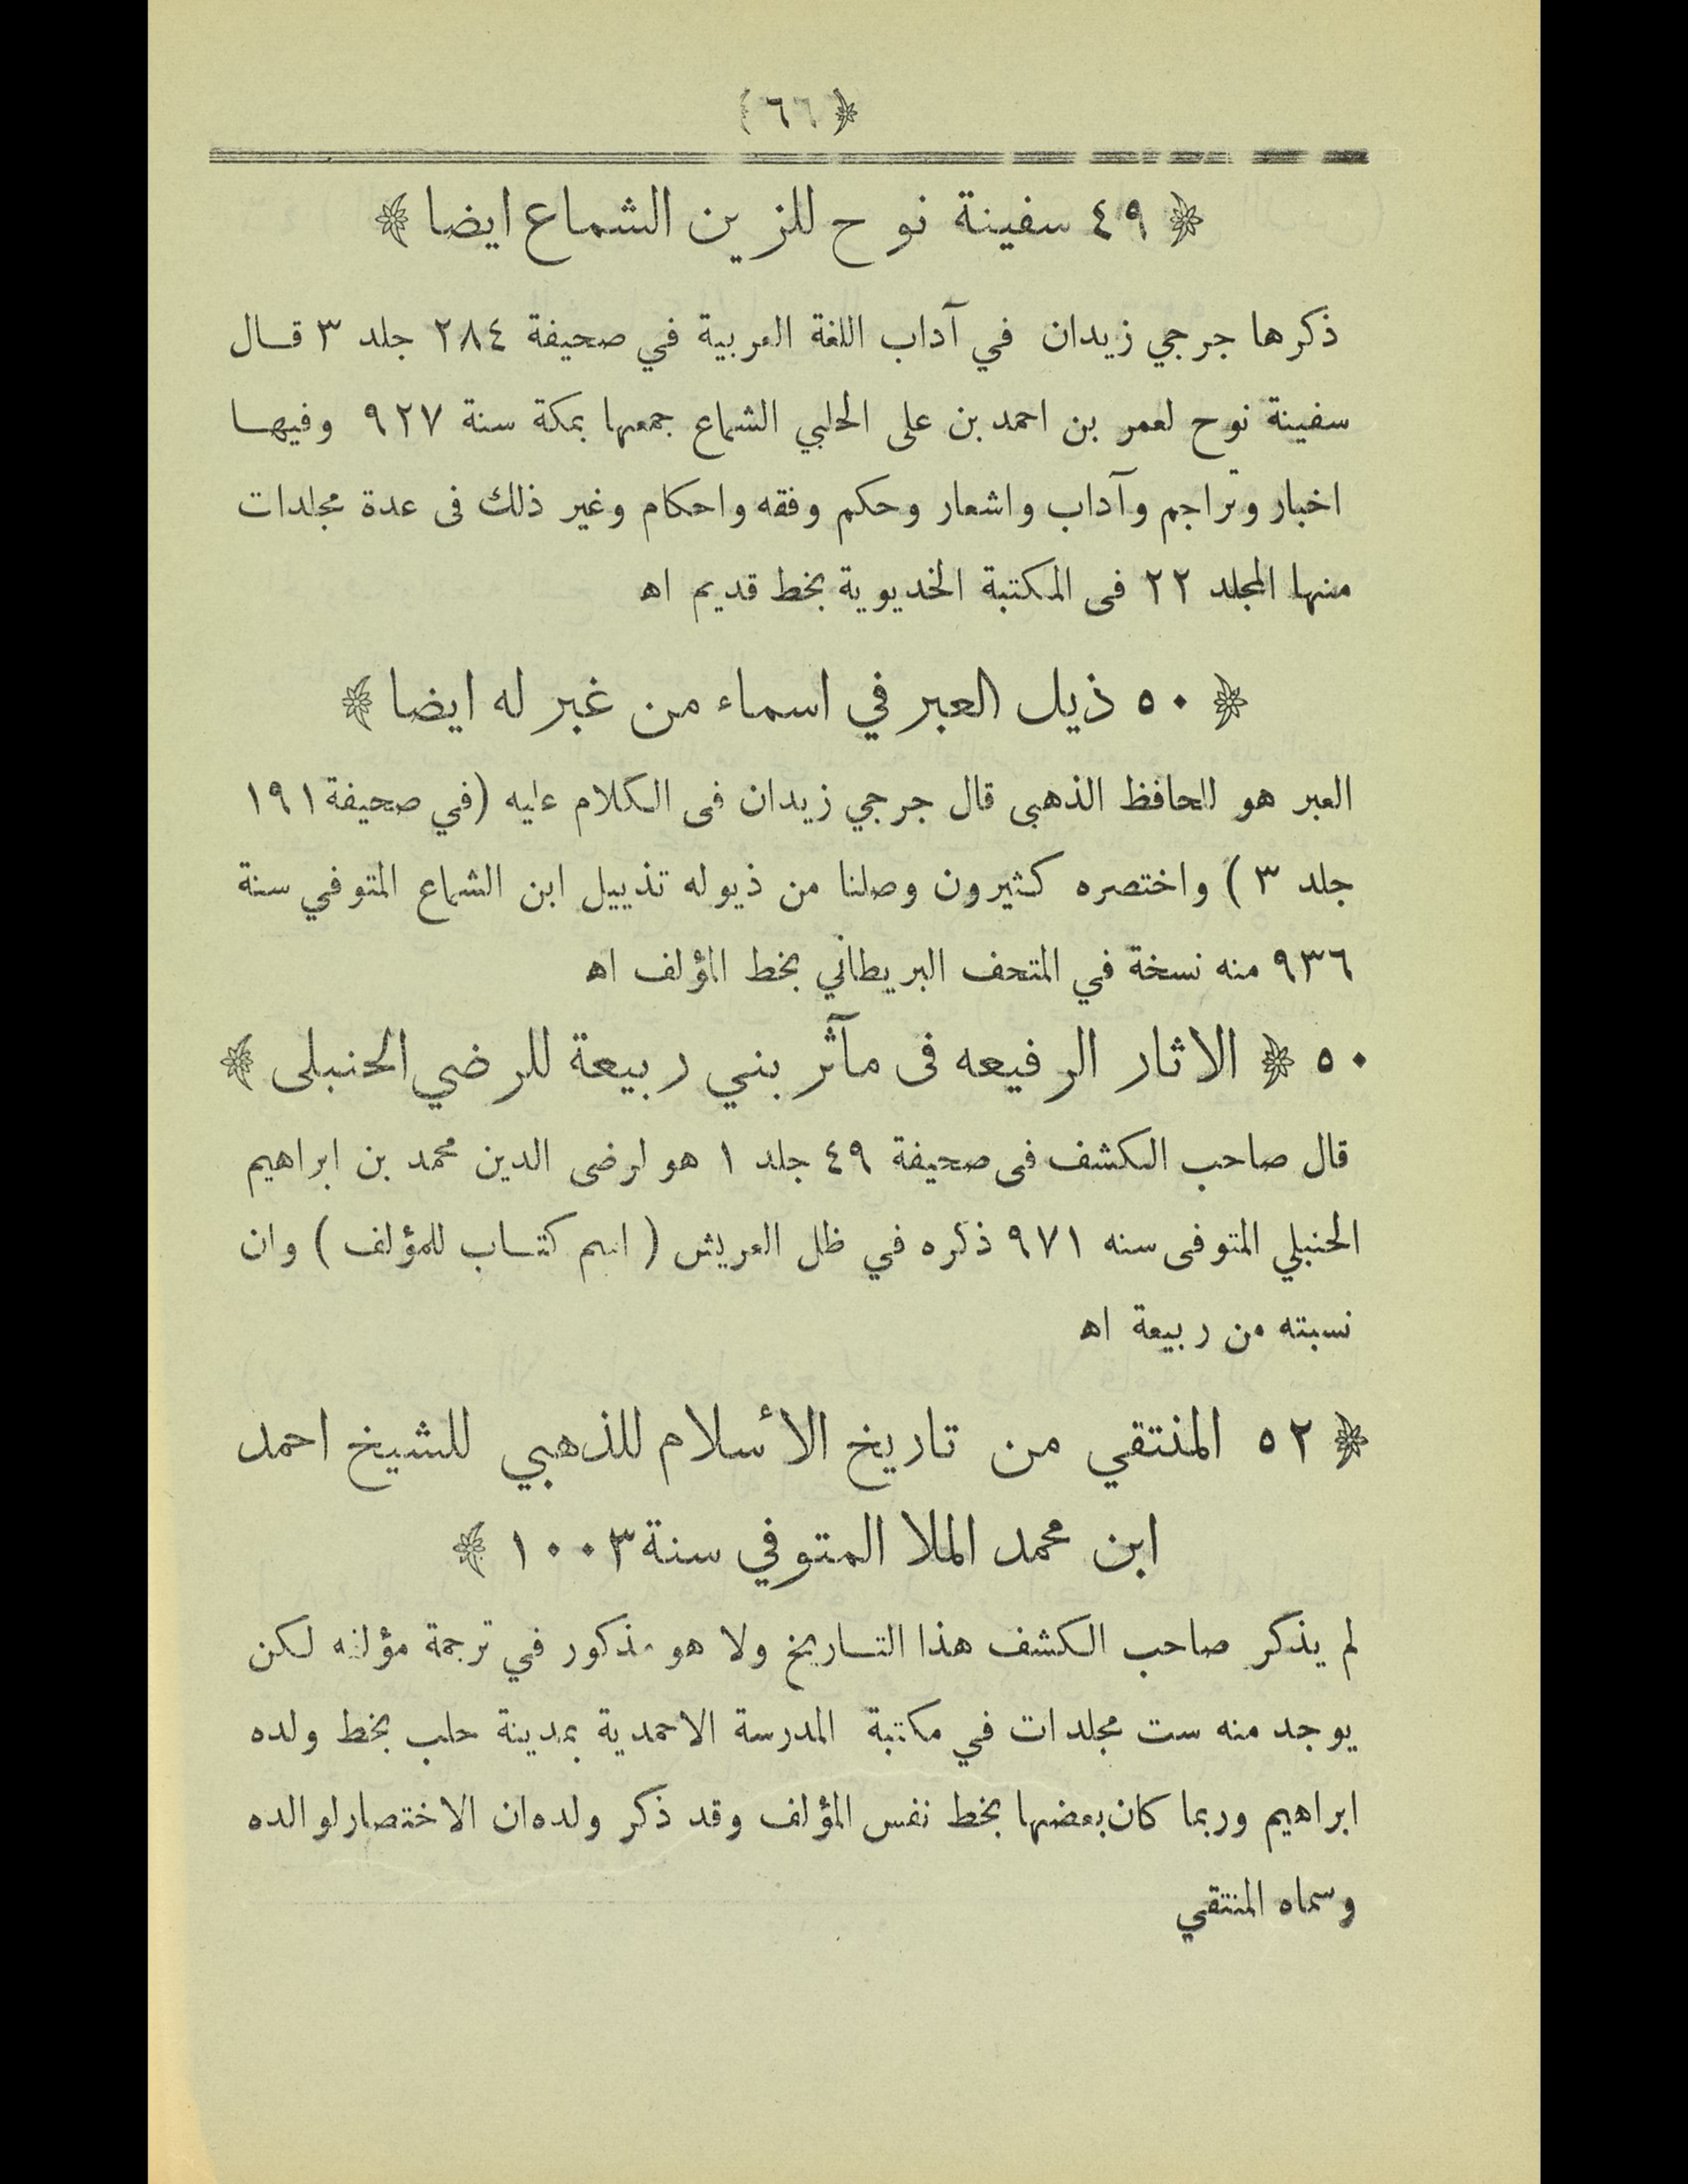 ﴿ ٦٦ ﴾
﴿ ٤٩ سفينة نوح للزين الشماع ايضا ﴾
ذكرها جرجي زيدان في آداب اللغة العربية في صحيفة ٢٨٤ جلد ٣ قال
سفينة نوح لعمر بن احمد بن على الحلبي الشماع جمعها بمكة سنة ٩٢٧ وفيها
اخبار وتراجم وآداب واشعار وحكم وفقه واحكام وغير ذلك فى عدة مجلدات
منها المجلد ٢٢ فى المكتبة الخديوية بخط قديم اه
﴿ ٥٠ ذيل العبر في اسماء من غبر له ايضا ﴾
العبر هو للحافظ الذهبى قال جرجي زيدان فى الكلام عليه (في صحيفة ١٩١
جلد ٣ ) واختصره كثيرون وصلنا من ذيوله تذييل ابن الشماع المتوفي سنة
٩٣٦ منه نسخة في المتحف البريطاني بخط المؤلف اه
٥٠ ﴿ الاثار الرفيعه فى مآثر بني ربيعة للرضي الحنبلى ﴾
قال صاحب الكشف فى صحيفة ٤٩ جلد ١ هو لرضى الدين محمد بن ابراهيم
الحنبلي المتوفى سنه ٩٧١ ذكره في ظل العريش ( اسم كتاب للمؤلف ) وان
نسبته من ربيعة اه
﴿ ٥٢ المنتقي من تاريخ الأسلام للذهبي للشيخ احمد
ابن محمد الملا المتوفي سنة ١٠٠٣ ﴾
لم يذكر صاحب الكشف هذا التاريخ ولا هو مذكور في ترجمة مؤلفه لكن
يوجد منه ست مجلدات في مكتبة المدرسة الاحمدية بمدينة حلب بخط ولده
ابراهيم وربما كان بعضها بخط نفس المؤلف وقد ذكر ولده ان الاختصار لوالده
وسماه المنتقي